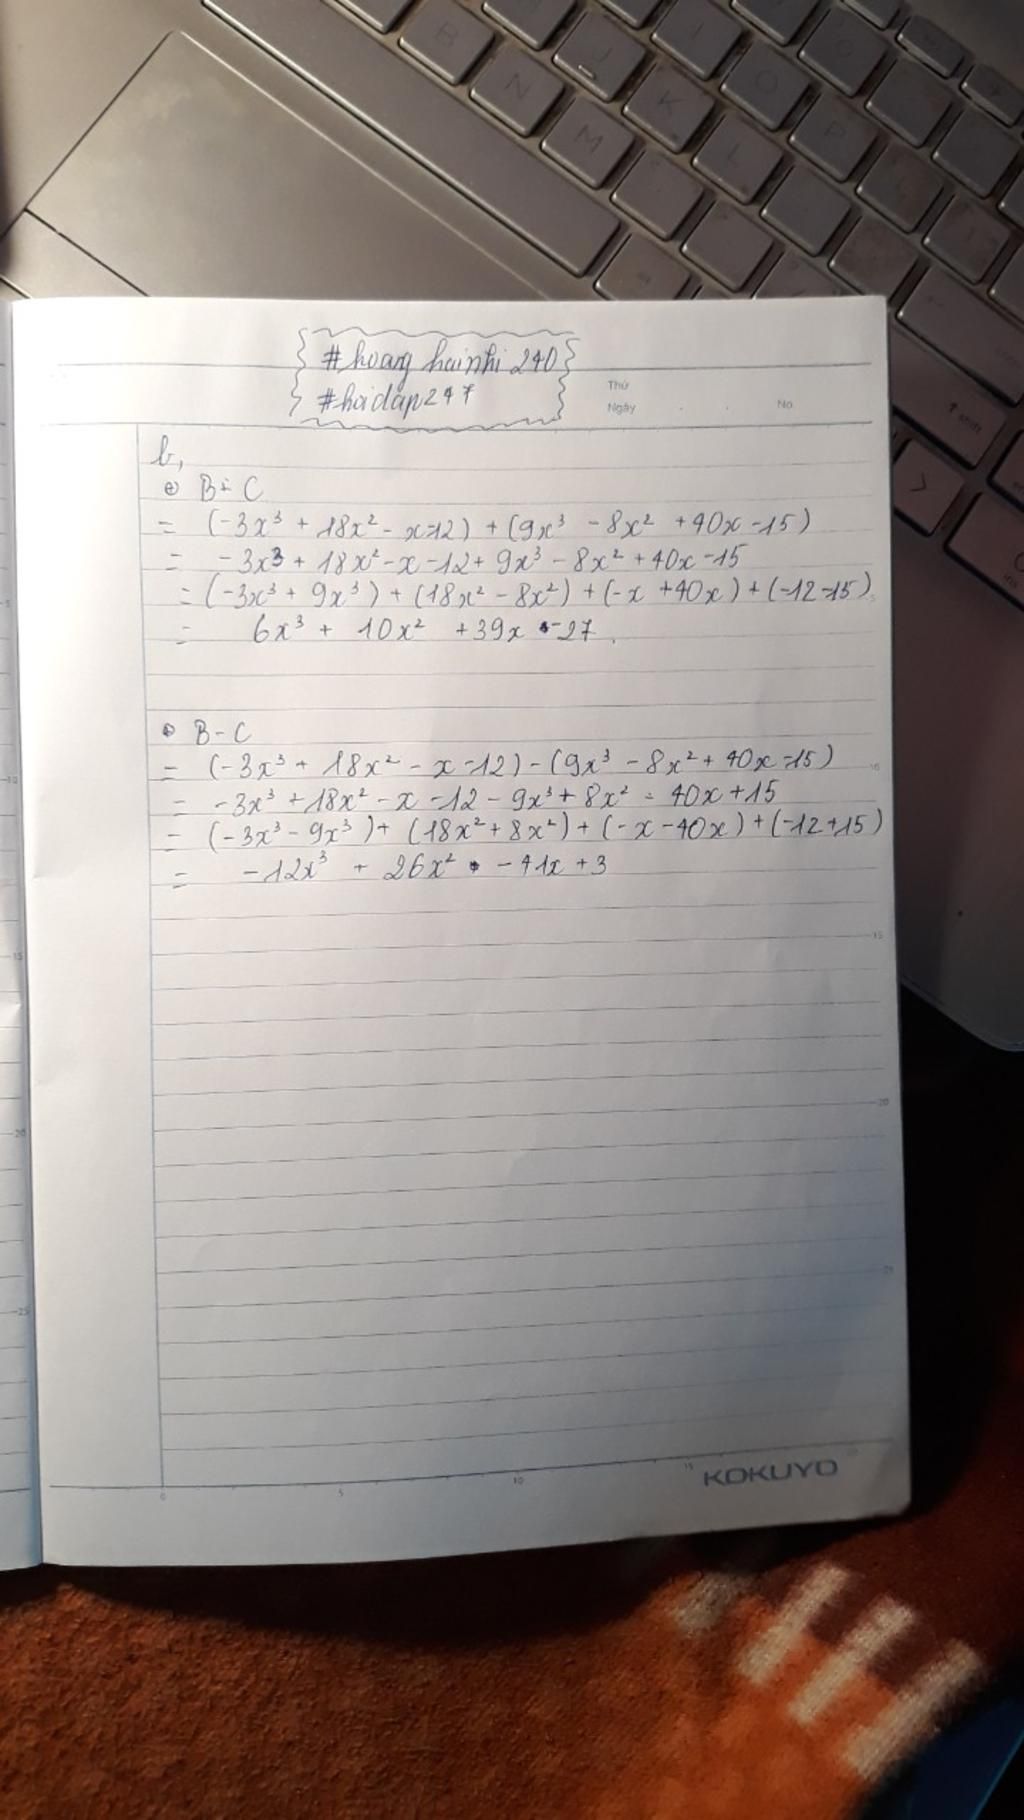 B
J
N
K
O
M
L
P
#hoang hainhi 240
#hoidap247
Thứ
Ngày . . No.
b,
B+C
= (-3x³ + 18x² - x-12) + (9x³ - 8x² + 40x -15)
= -3x³ + 18x² - x -12 + 9x³ - 8x² + 40x -15
= (-3x³ + 9x³) + (18x² - 8x²) + (-x +40x) + (-12-15)
= 6x³ + 10x² +39x -27.
B-C
= (-3x³ + 18x² - x -12) - (9x³ - 8x² + 40x -15)
= -3x³ +18x² - x -12 - 9x³ + 8x² - 40x +15
= (-3x³ - 9x³) + (18x² + 8x²) + (-x -40x) + (-12+15)
= -12x³ + 26x² -41x +3
KOKUYO